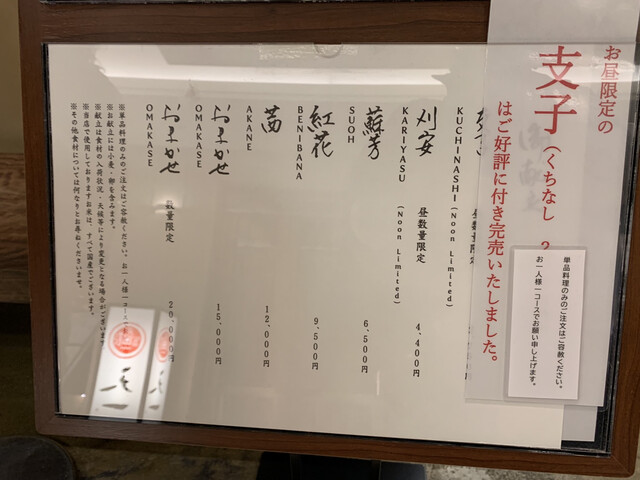 お昼限定の
支子(くちなし
はご好評に付き完売いたしました。
単品料理のみのご注文はご容赦ください。
お一人様一コースでお願い申し上げます。
KUCHINASHI (Noon Limited)
刈安 昼数量限定 4,400円
KARIYASU (Noon Limited)
蘇芳 6,500円
SUOH
紅花 9,500円
BENIBANA
茜 12,000円
AKANE
おまかせ 15,000円
OMAKASE
おまかせ 数量限定 20,000円
OMAKASE
※単品料理のみのご注文はご容赦ください。お一人様一コース
※お献立には小麦・卵を含みます。
※献立は食材の入荷状況・天候等により変更となる場合がございます
※当店で使用しておりますお米は、すべて国産でございます。
※その他食材については何なりとお尋ねくださいませ。